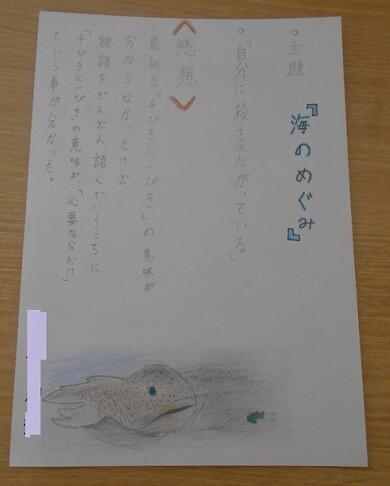 ○主題…『海のめぐみ』
○「自分に殺されたがっている」
〈感想〉
最初は「千びきに一ぴき」の意味が
分からなかったけど、
物語をどんどん読んでいくうちに
「千びきに一ぴき」の意味が、「必要な分だけ」
という事が分かった。